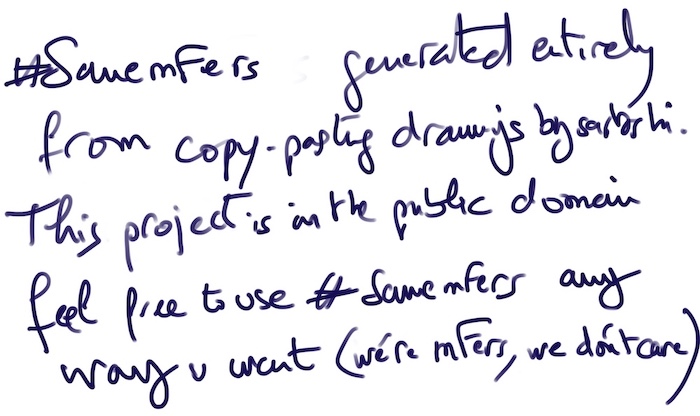 #Samemfers generated entirely
from copy-pasting drawings by sartoshi.
This project is in the public domain
feel free to use #Samemfers any
way u want (we're mfers, we don't care)